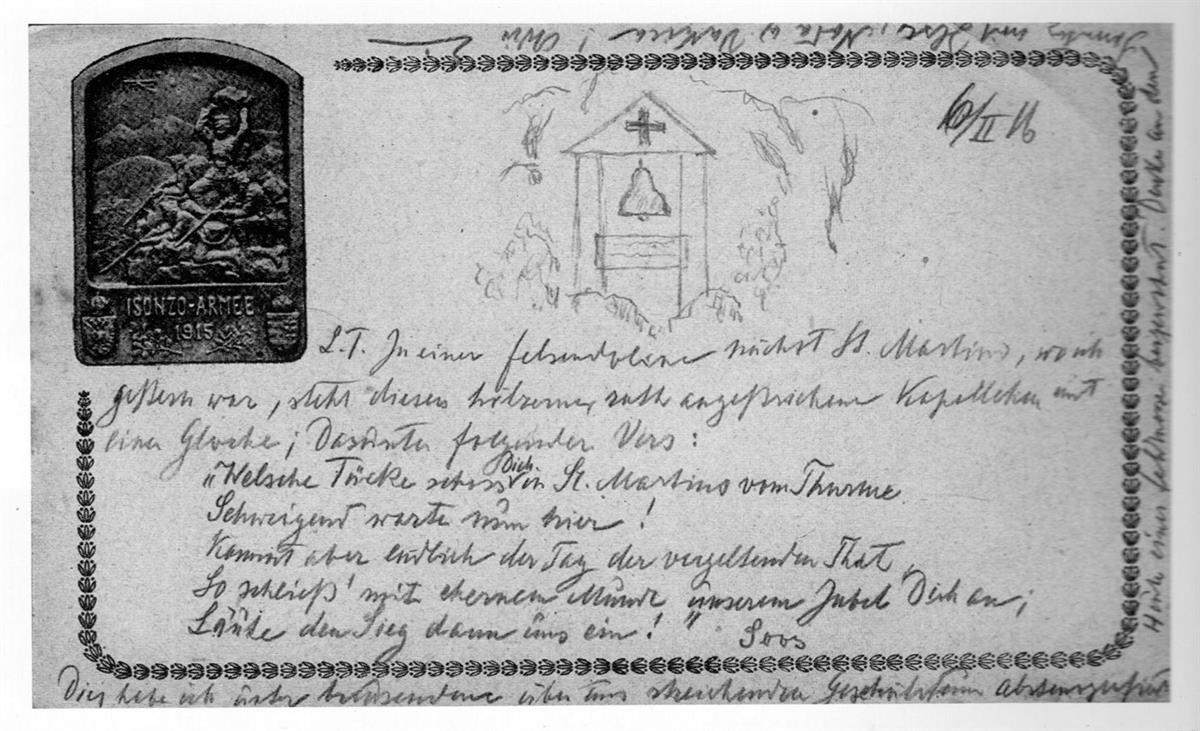 ISONZO-ARMEE
1915
6/II 16
L.T. In einer Felsendoline nächst St. Martino, wo ich
gestern war, steht dieses hölzerne, roth angestrichene Kapellchen mit
einer Glocke; Darunter folgender Vers:
„Welsche Tücke schoss Dich in St. Martino vom Thurme
Schweigend warte nun hier!
Kommt aber endlich der Tag der vergeltenden That,
So schließ' mit ehernem Munde unserem Jubel Dich an;
Läute den Sieg dann uns ein!"
Dies habe ich unter über uns streichenden
Heute einer hervor. Denke an den
mit